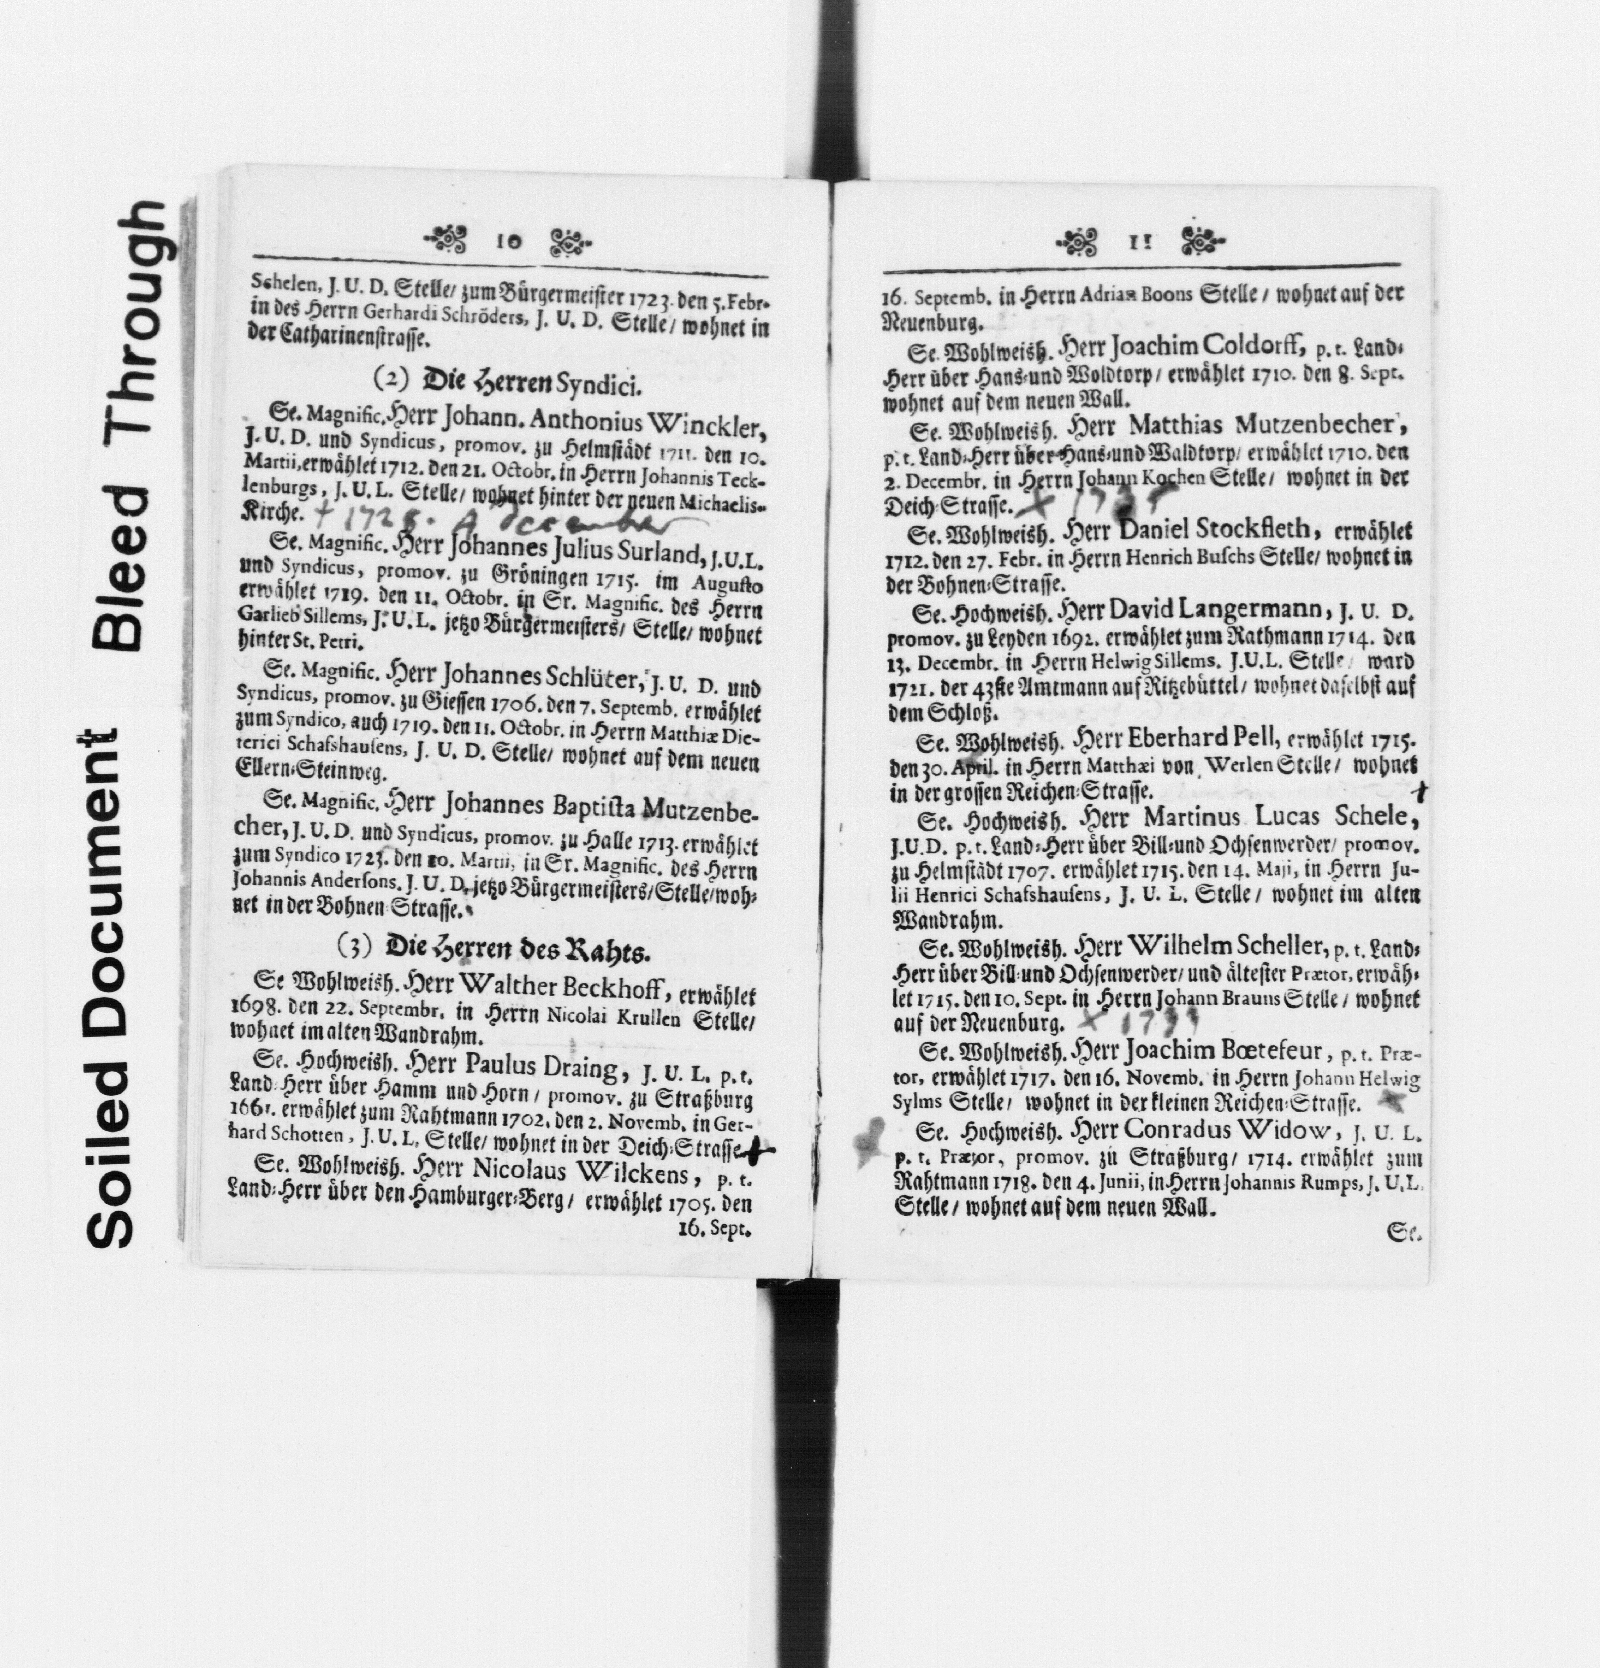 Soiled Document Bleed Through
10
Schelen, J. U. D. Stelle/ zum Bürgermeister 1723. den 5. Febr.
in des Herrn Gerhardi Schröders, J. U. D. Stelle/ wohnet in
der Catharinenstrasse.
(2) Die Herren Syndici.
Se. Magnific. Herr Johann. Anthonius Winckler,
J. U. D. und Syndicus, promov. zu Helmstädt 1711. den 10.
Martii, erwählet 1712. den 21. Octobr. in Herrn Johannis Teck-
lenburgs, J. U. L. Stelle/ wohnet hinter der neuen Michaelis-
Kirche. † 1728. December
Se. Magnific. Herr Johannes Julius Surland, J.U.L.
und Syndicus, promov. zu Gröningen 1715. im Augusto
erwählet 1719. den 11. Octobr. in Sr. Magnific. des Herrn
Garlieb Sillems, J. U. L. jetzo Bürgermeisters/ Stelle/ wohnet
hinter St. Petri.
Se. Magnific. Herr Johannes Schlüter, J. U. D. und
Syndicus, promov. zu Giessen 1706. den 7. Septemb. erwählet
zum Syndico, auch 1719. den 11. Octobr. in Herrn Matthiæ Die-
terici Schafshausens, J. U. D. Stelle/ wohnet auf dem neuen
Ellern-Steinweg.
Se. Magnific. Herr Johannes Baptista Mutzenbe-
cher, J. U. D. und Syndicus, promov. zu Halle 1713. erwählet
zum Syndico 1723. den 10. Martii, in Sr. Magnific. des Herrn
Johannis Andersons. J. U. D. jetzo Bürgermeisters/ Stelle/ woh-
net in der Bohnen-Strasse.
(3) Die Herren des Rahts.
Se Wohlweish. Herr Walther Beckhoff, erwählet
1698. den 22. Septembr. in Herrn Nicolai Krullen Stelle/
wohnet im alten Wandrahm.
Se. Hochweish. Herr Paulus Draing, J. U. L. p. t.
Land-Herr über Hamm und Horn / promov. zu Straßburg
1661. erwählet zum Rahtmann 1702. den 2. Novemb. in Ger-
hard Schotten, J. U. L. Stelle/ wohnet in der Deich-Strasse †
Se. Wohlweish. Herr Nicolaus Wilckens, p. t.
Land-Herr über den Hamburger-Berg/ erwählet 1705. den
16. Sept.
11
16. Septemb. in Herrn Adrian Boons Stelle / wohnet auf der
Neuenburg.
Se. Wohlweish. Herr Joachim Coldorff, p. t. Land-
Herr über Hans-und Woldtorp/ erwählet 1710. den 8. Sept.
wohnet auf dem neuen Wall.
Se. Wohlweish. Herr Matthias Mutzenbecher,
p. t. Land-Herr über Hans-und Waldtorp/ erwählet 1710. den
2. Decembr. in Herrn Johann Kochen Stelle/ wohnet in der
Deich-Strasse.
Se. Wohlweish. Herr Daniel Stockfleth, erwählet
1712. den 27. Febr. in Herrn Henrich Buschs Stelle/ wohnet in
der Bohnen-Strasse.
Se. Hochweish. Herr David Langermann, J. U. D.
promov. zu Leyden 1692. erwählet zum Rathmann 1714. den
13. Decembr. in Herrn Helwig Sillems. J.U.L. Stelle/ ward
1721. der 43ste Amtmann auf Ritzebüttel/ wohnet daselbst auf
dem Schloß.
Se. Wohlweish. Herr Eberhard Pell, erwählet 1715.
den 30. April. in Herrn Matthæi von Werlen Stelle/ wohnet
in der grossen Reichen-Strasse. †
Se. Hochweish. Herr Martinus Lucas Schele,
J.U.D. p. t. Land-Herr über Bill-und Ochsenwerder/ promov.
zu Helmstädt 1707. erwählet 1715. den 14. Maji, in Herrn Ju-
lii Henrici Schafshausens, J. U. L. Stelle/ wohnet im alten
Wandrahm.
Se. Wohlweish. Herr Wilhelm Scheller, p. t. Land-
Herr über Bill-und Ochsenwerder/ und ältester Prætor, erwäh-
let 1715. den 10. Sept. in Herrn Johann Brauns Stelle / wohnet
auf der Neuenburg.
Se. Wohlweish. Herr Joachim Bœtefeur, p. t. Præ-
tor, erwählet 1717. den 16. Novemb. in Herrn Johann Helwig
Sylms Stelle/ wohnet in der kleinen Reichen-Strasse.
Se. Hochweish. Herr Conradus Widow, J. U. L.
p. t. Prætor, promov. zu Straßburg/ 1714. erwählet zum
Rahtmann 1718. den 4. Junii, in Herrn Johannis Rumps, J. U. L.
Stelle/ wohnet auf dem neuen Wall.
Se.